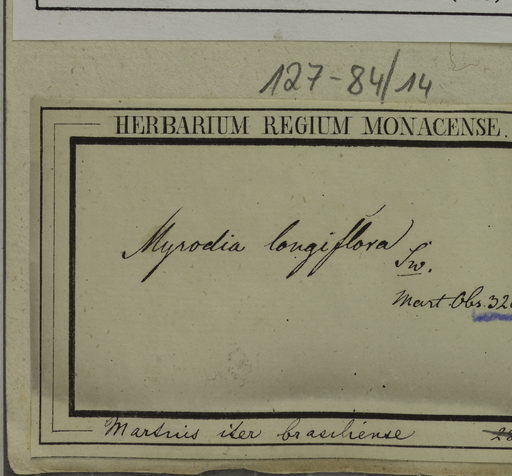 127-84/14
HERBARIUM REGIUM MONACENSE.
Myrodia longiflora
Sw.
Mart. Obs.
Martius iter brasiliense